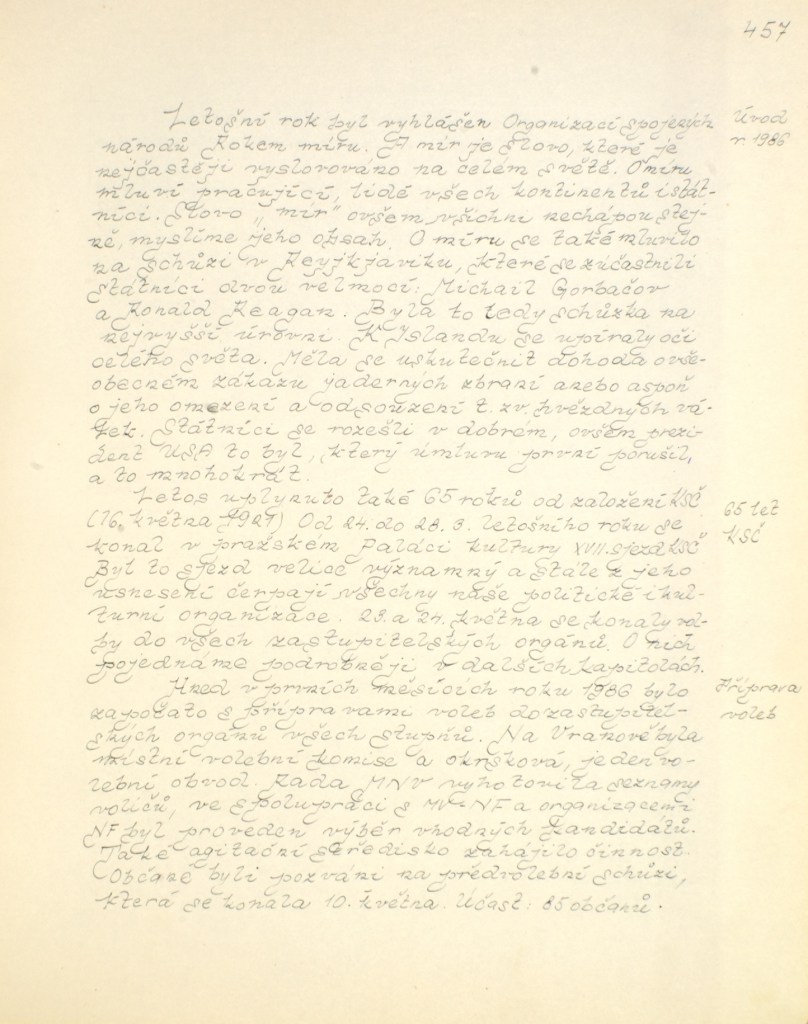 457
Letošní rok byl vyhlášen Organizací spojených
Úvod
r. 1986
národů Rokem míru. A mír je slovo, které je
nejčastěji vyslovováno na celém světě. O míru
mluví pracující, lidé všech kontinentů i stát-
níci. Slovo „mír" ovšem všichni nechápou stej-
ně, myslíme jeho obsah. O míru se také mluvilo
na schůzi v Reyjkjaviku, které se zúčastnili
státníci dvou velmocí: Michail Gorbačov
a Ronald Reagan. Byla to tedy schůzka na
nejvyšší úrovni. K Islandu se upíraly oči
celého světa. Měla se uskutečnit dohoda o vše-
obecném zákazu jaderných zbraní anebo aspoň
o jeho omezení a odsouzení t. zv. hvězdných vá-
lek. Státníci se rozešli v dobrém, ovšem prezi-
dent USA to byl, který úmluvu první porušil,
a to mnohokrát.
Letos uplynulo také 65 roků od založení KSČ
65 let
KSČ
(16. května 1921) Od 24. do 28. 3. letošního roku se
konal v pražském Paláci kultury XVII. sjezd KSČ
Byl to sjezd velice významný a stále z jeho
usnesení čerpají všechny naše politické i kul-
turní organizace. 23. a 24. května se konaly vol-
by do všech zastupitelských orgánů. O nich
pojednáme podrobněji v dalších kapitolách.
Hned v prvních měsících roku 1986 bylo
Příprava
voleb
započato s přípravami voleb do zastupitel-
ských orgánů všech stupňů. Na Vranové byla
místní volební komise a okrsková, jeden vo-
lební obvod. Rada MNV vyhotovila seznamy
voličů, ve spolupráci s MV-NF a organizacemi
NF byl proveden výběr vhodných kandidátů.
Také agitační středisko zahájilo činnost.
Občané byli pozváni na předvolební schůzi,
která se konala 10. května. Účast: 85 občanů.